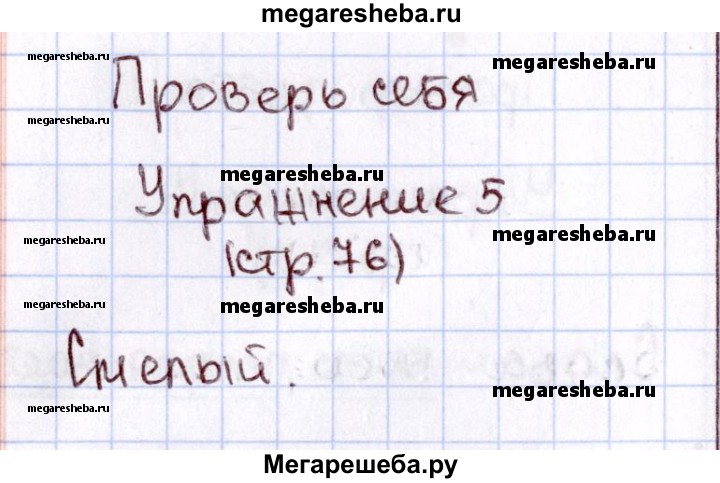 megaresheba.ru
megaresheba.ru
megaresheba.ru
Проверь себя
megaresheba.ru
megaresheba.ru
Упражнение 5
megaresheba.ru
megaresheba.ru
(стр. 76)
megaresheba.ru
megaresheba.ru
Смелый.
megaresheba.ru
megaresheba.ru
Мегарешеба.ру